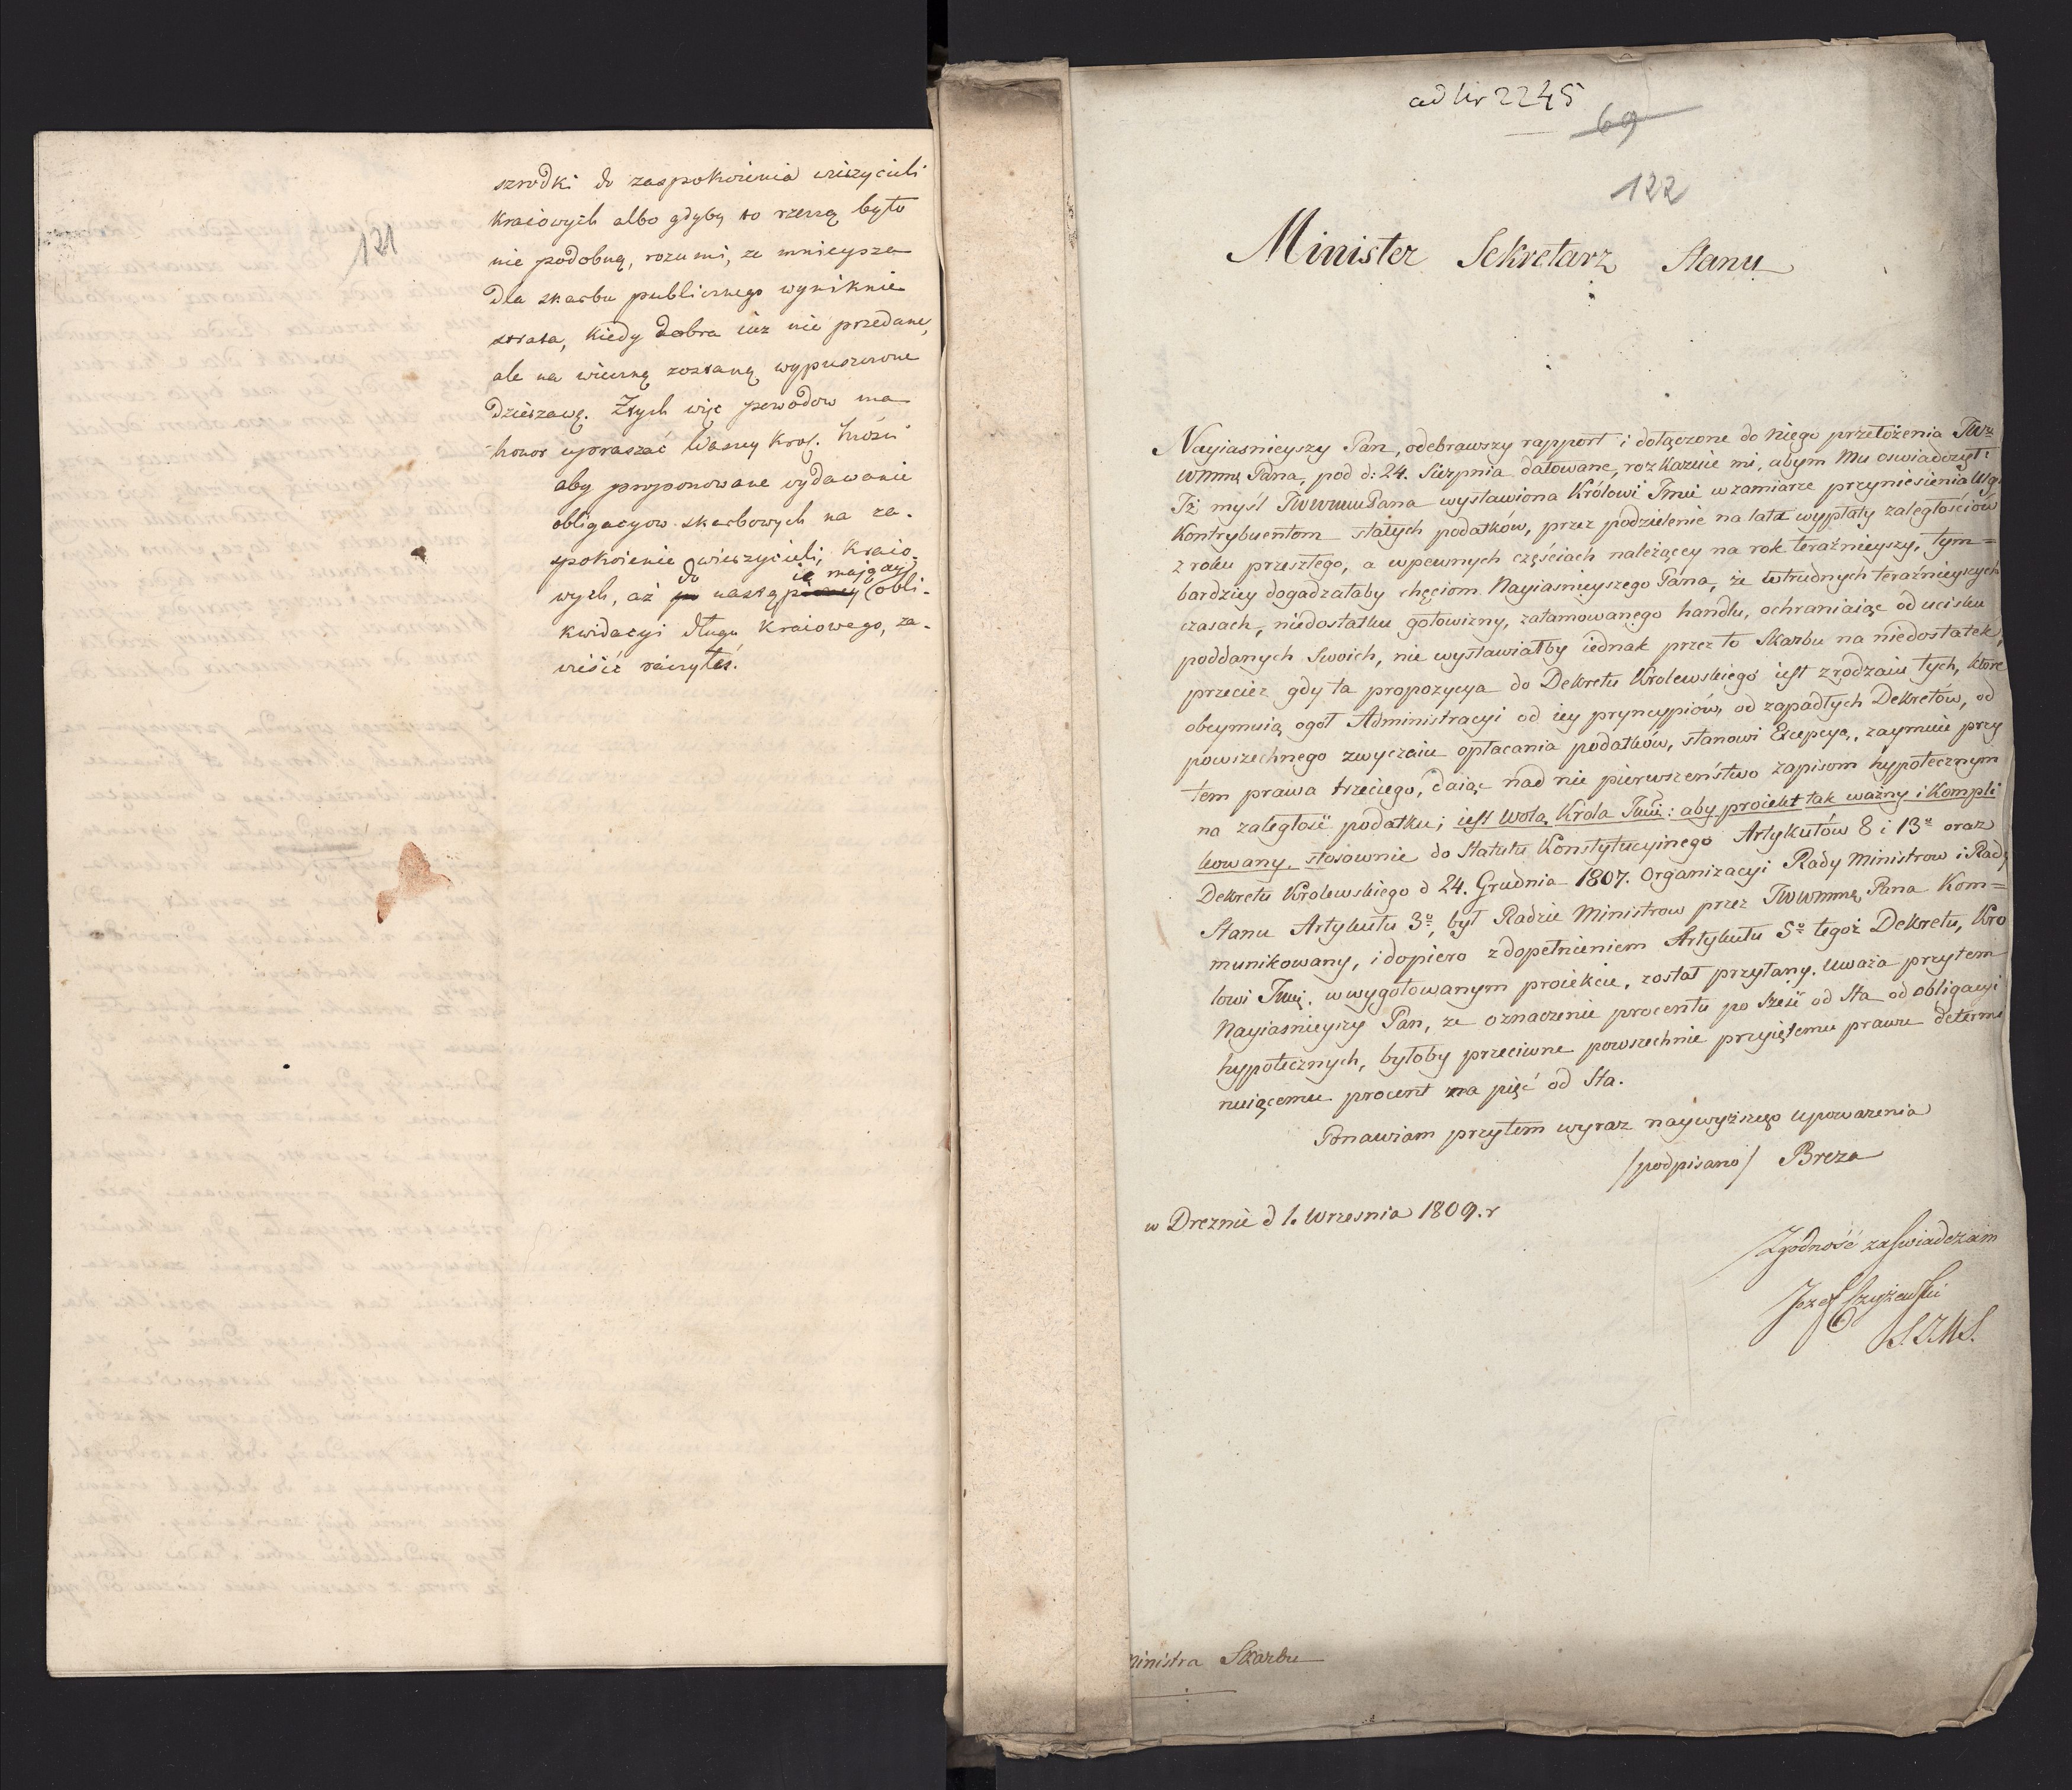 121
szrodki do zaspokoienia wieżycieli
kraiowych albo gdyby to rzeczą było
nie podobną, rozumi, że mnieysza
dla skarbu publicznego wyniknie
strata, kiedy dobra iuż nie przedane,
ale na wieczną zostaną wypuszczone
dzierzawę. Z tych więc powodow ma
honor upraszać Waszey Krol. Mości
aby proponowane wydawanie
obligacyow skarbowych na za-
spokoienie wieżycieli, kraio-
wych, aż do nastąpić mającey obli-
kwidacyi długu kraiowego, za-
wiesić raczyłeś.
ad Nr 2245
69
122
Minister Sekretarz Stanu
Nayiasnieyszy Pan, odebrawszy rapport i dołączone do niego przełożenia JW
WMmę Pana, pod d: 24. Sierpnia datowane, rozkazuie mi, abym Mu oswiadczył:
Jż myśl JWWMM Pana wystawiona Królowi Jmci w zamiarze przyniesienia Ulg
Kontrybuentom stałych podatków, przez podzielenie na lata wypłaty zaległościów
z roku przeszłego, a w pewnych częściach należącey na rok teraźnieyszy, tym=
bardziey dogadzałaby chęciom Nayiasnieyszego Pana, że w trudnych teraźnieyszych
czasach, niedostatku gotowizny, zatamowanego handlu, ochraniaiąc od ucisku
poddanych Swoich, nie wystawiałby iednak przez to Skarbu na niedostatek,
przecież gdy ta propozycya do Dekretu Krolewskiego iest z rodzaiu tych, które
obeymuią ogół Administracyi od iey pryncypiów, od zapadłych Dekretów, od
powszechnego zwyczaiu opłacania podatków, stanowi Excepcyą, zaymuie przy
tem prawa trzeciego, daiąc nad nie pierwszeństwo zapisom hypotecznym
na zaległość podatku; iest wolą Krola Jmci: aby proiekt tak ważny i kompli
kowany, stosownie do Statutu Konstytucyinego Artykułów 8 i 13º oraz
Dekretu Krolewskiego d 24. Grudnia 1807. Organizacyi Rady Ministrow i Rady
Stanu Artykułu 3º, był Radzie Ministrow przez JWWMmę Pana Kom=
munikowany, i dopiero z dopełnieniem Artykułu 5º tegoż Dekretu, Kro
lowi Jmci, w wygotowanym proiekcie, został przysłany. Uważa przytem
Nayiasnieyszy Pan, że oznaczenie procentu po sześć od Sta od obligacyi
hypotecznych, byłoby przeciwne powszechnie przyiętemu prawu determi
nuiącemu procent na pięć od Sta.
Ponawiam przytem wyraz naywyższego upoważenia
/podpisano/ Breza
w Dreznie d 1. Wrzesnia 1809. r
Zgodność zaswiadczam
Jozef Czyżewski
S.R.M.S.
Ministra Skarbu